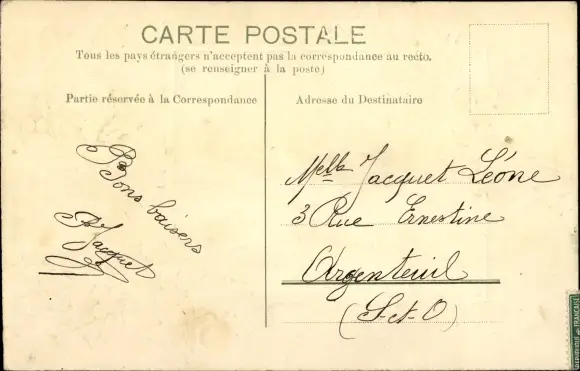 CARTE POSTALE
Tous les pays étrangers n'acceptent pas la correspondance au recto.
(se renseigner à la poste)
Partie réservée à la Correspondance
Adresse du Destinataire
Bons baisers
Jacquet
Melle Jacquet Léone
3 Rue Ernestine
Argenteuil
(S-et-O)
FRANÇAISE